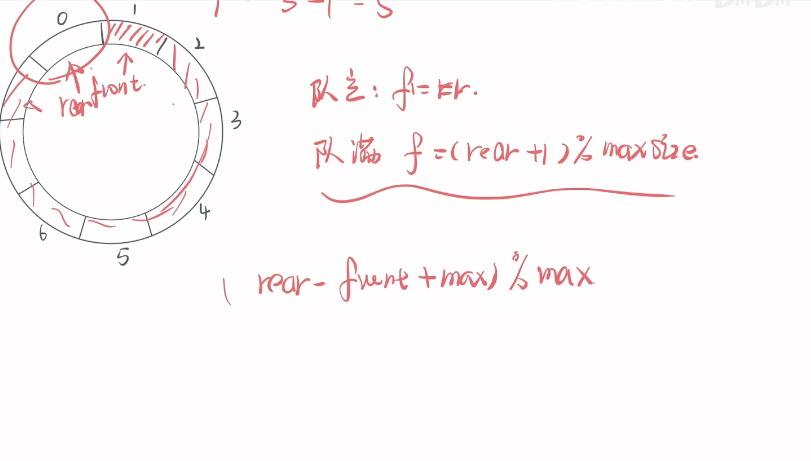 0
1
2
3
4
5
6
rear
front.
队空: f=r.
队满 f=(rear+1)% maxsize.
(rear-front+max)% max